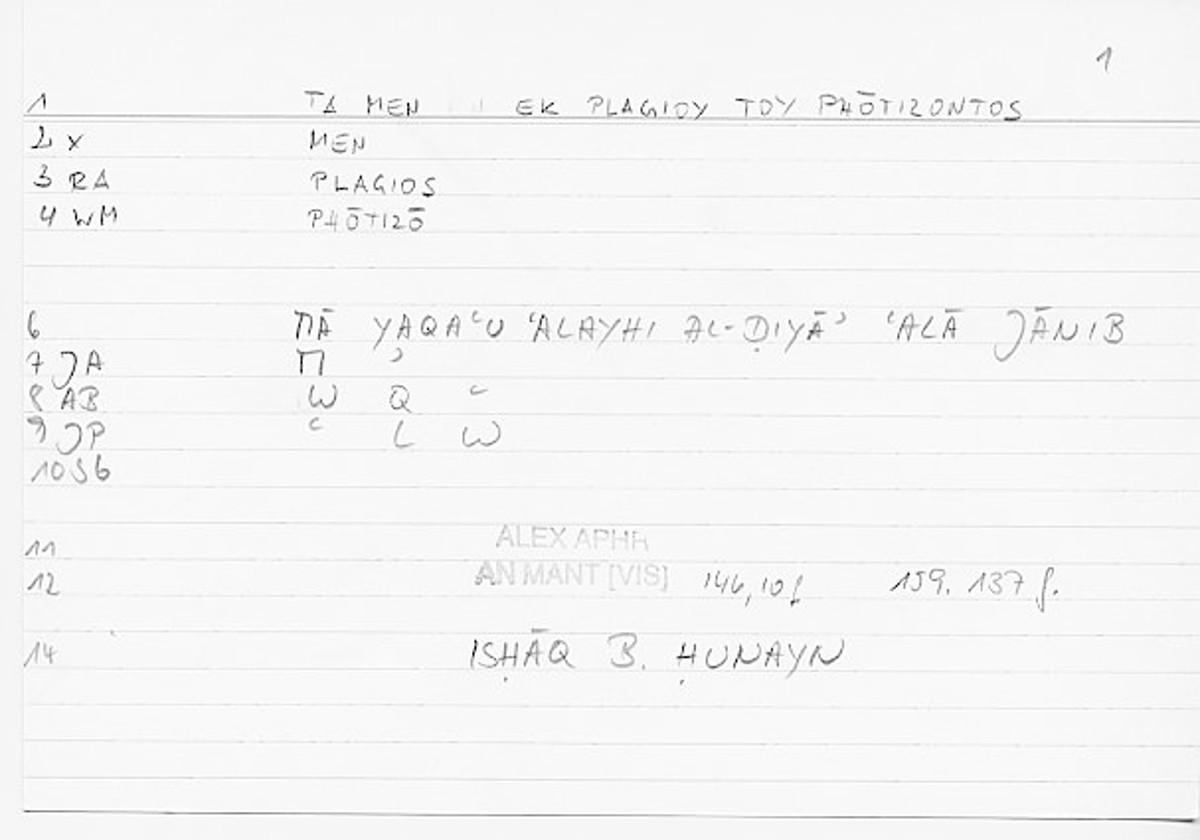 1
1 TA MEN EK PLAGIOY TOY PHŌTIZONTOS
2 X MEN
3 RA PLAGIOS
4 WM PHŌTIZŌ
6 MĀ YAQAʿU ʿALAYHI AL-ḌIYĀʾ ʿALĀ JĀNIB
7 JA M ʾ
8 AB W Q ʿ
9 JP ʿ L W
10 SG
11 ALEX APHR
12 AN MANT [VIS] 146,10 f 159. 137 f.
14 ISḤĀQ B. ḤUNAYN